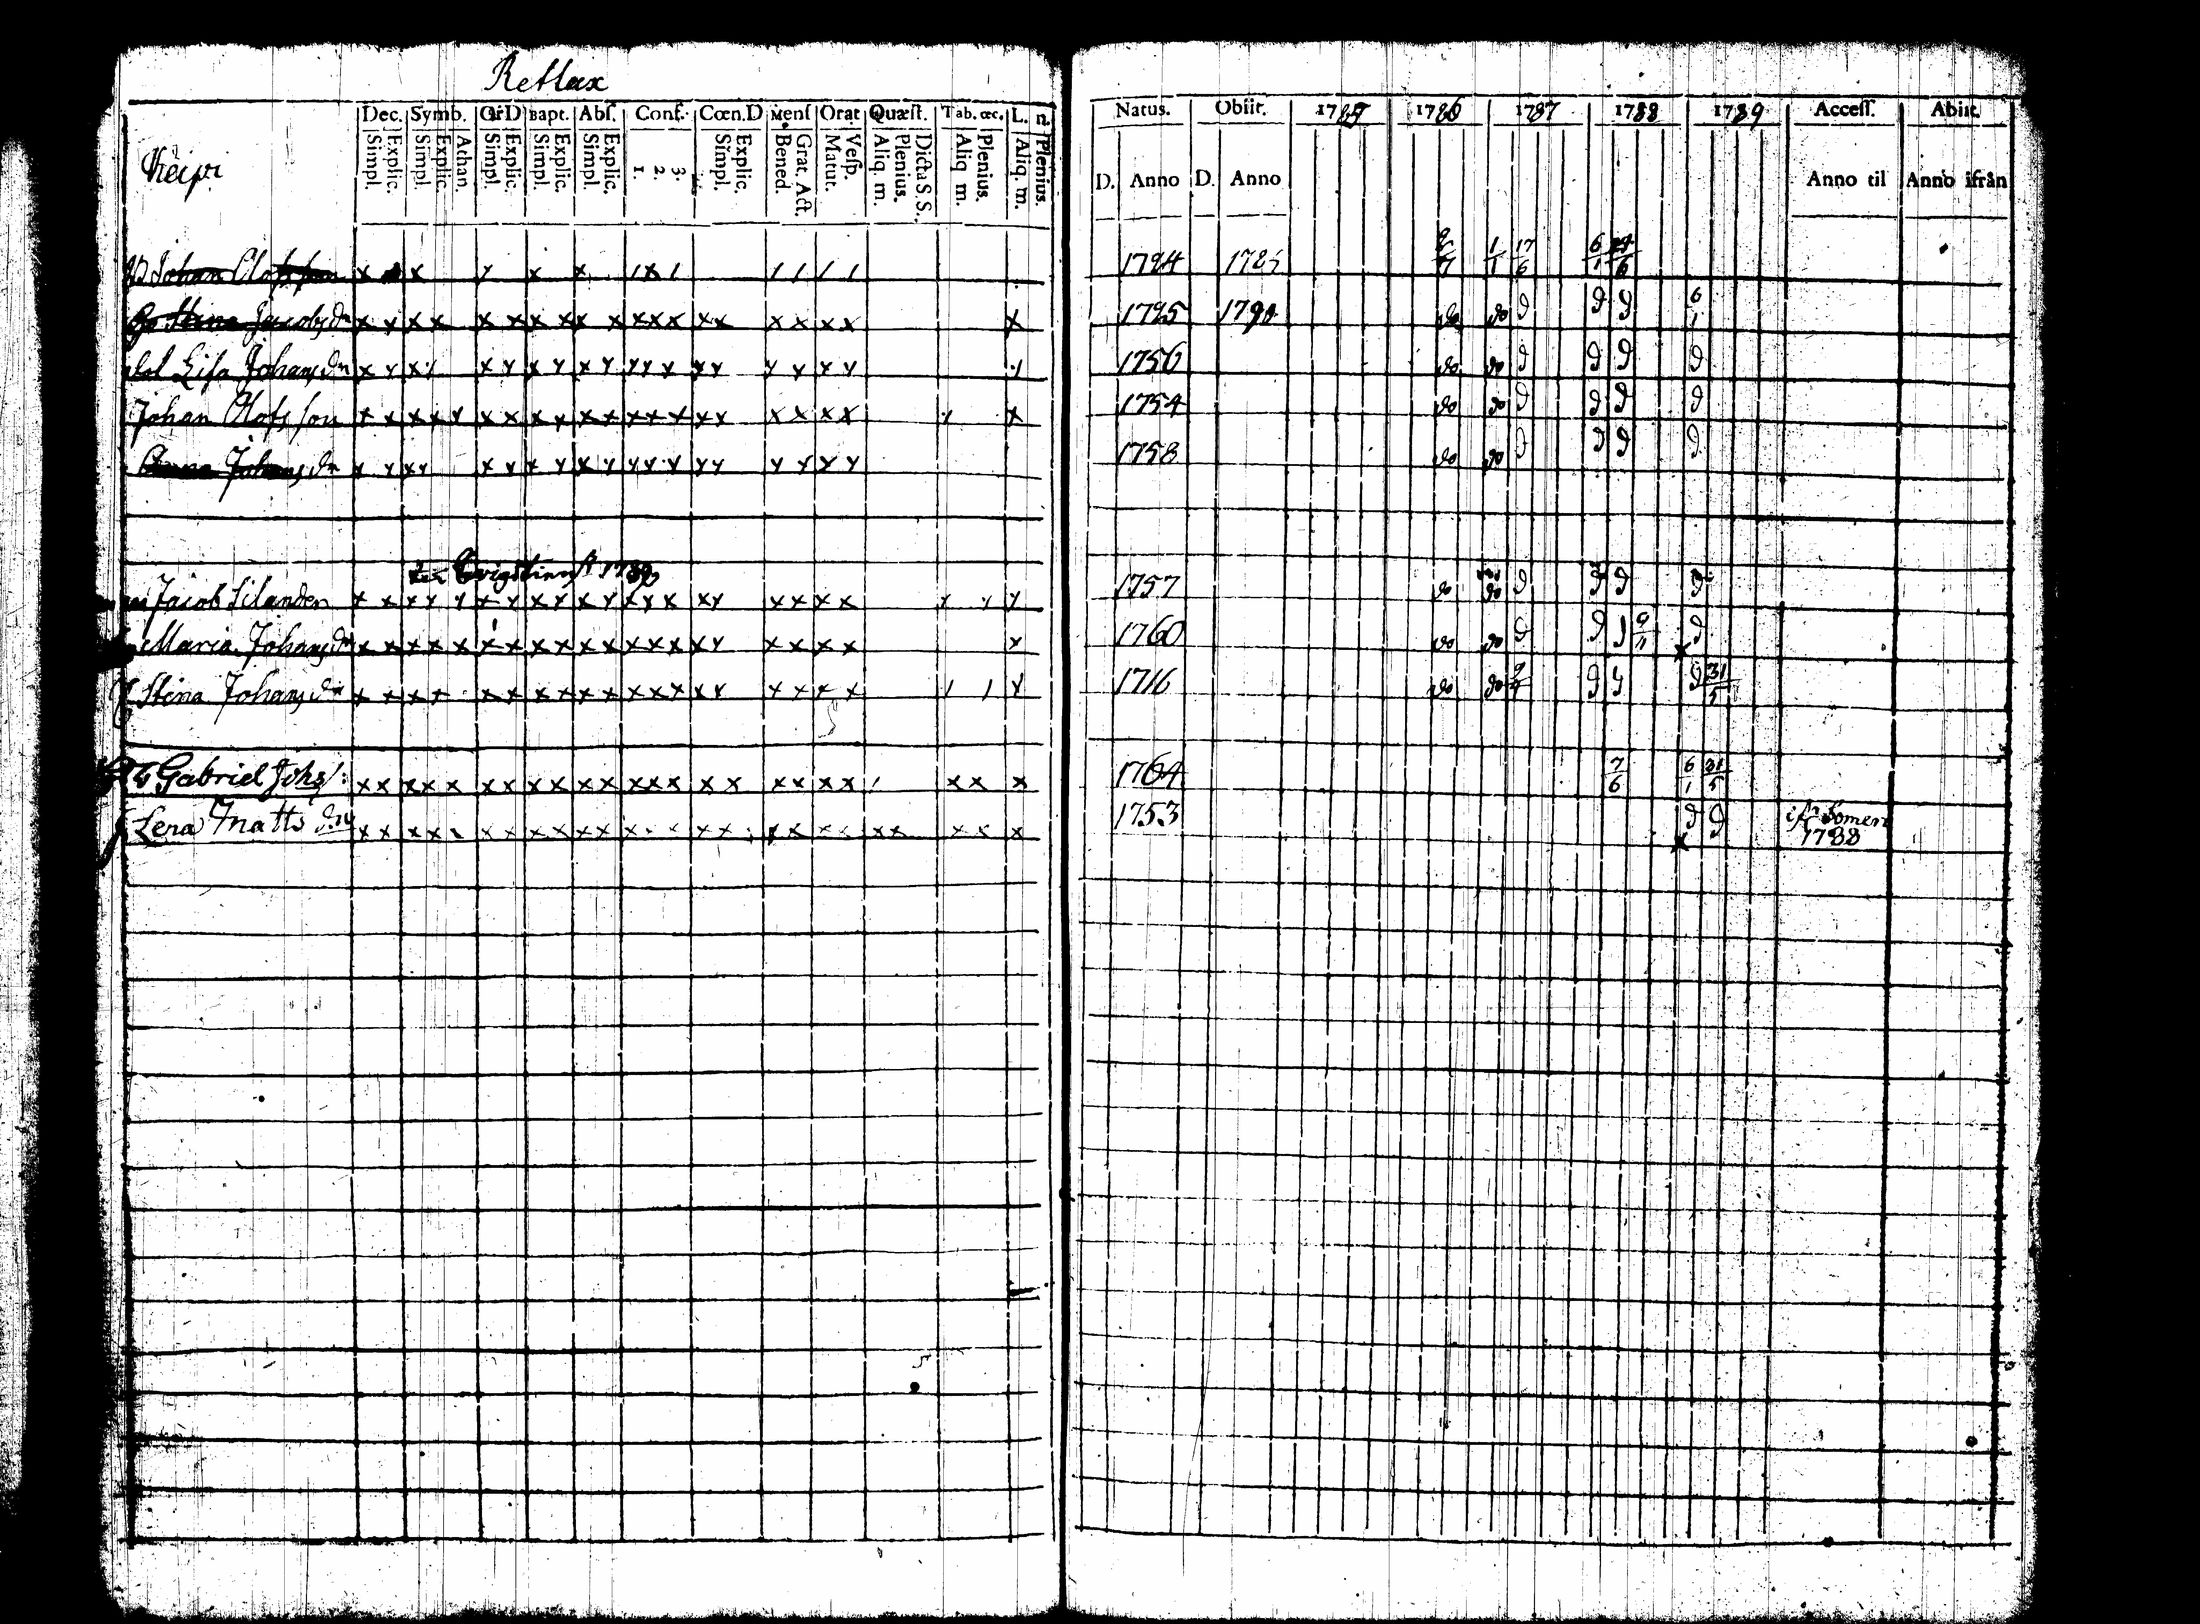 Retlax
Dec. Symb. OrD Bapt. Abſ. Conf. Cœn.D Menſ Orat Quæſt. Tab. œc. L. n.
Simpl. Explic. Simpl. Explic. Athan. Simpl. Explic. Simpl. Explic. Simpl. Explic. 1. 2. 3. Simpl. Explic. Bened. Grat. Act. Matut. Veſp. Aliq. m. Plenius. Dicta S.S. Aliq m. Plenius. Aliq. m. Plenius.
Keipi
Natus. Obiit. 1785 1786 1787 1788 1789 Acceſſ. Abiit.
D. Anno D. Anno Anno til Anno ifrån
Johan Olofsson x x y x x 1x1 1 1 1 1 1724 2/7 1/1 17/6 6/1 24/6
Stina Jacobsdr x y x x x x x x x x x x x x x x x x x x 1725 1790 do do D D D 6/1
Lisa Johansdr x y x y x y x y x y y y x y y y y y y y 1756 do do D D D D
Johan Olofsson x x x x y x x x y x x x x x x y x x x x x 1754 do do D D D D
Anna Johansdr x y x y x y x y x y y x y y y y y y y 1758 do do D D D D
1789
Jacob Silander x x x y y x y x y x y x y x x y x x x x y y y 1757 do do D D D D
Maria Johansdr x x x x x x x x x x x x x x x y x x x x x 1760 do do D D 9/11 D
Stina Johansdr x x x x x x x x x x x x x x x x x x x 1 1 y 1716 do do D 31/5
Gabriel Johs: x x x x x x x x x x x x x x x x x x x x 1 x x x 1764 7/6 6/1 31/5
Lena Matts dr x x x x x x x x x x x x x x x x x x x x x x x x x 1753 D D ifr Somero
1788